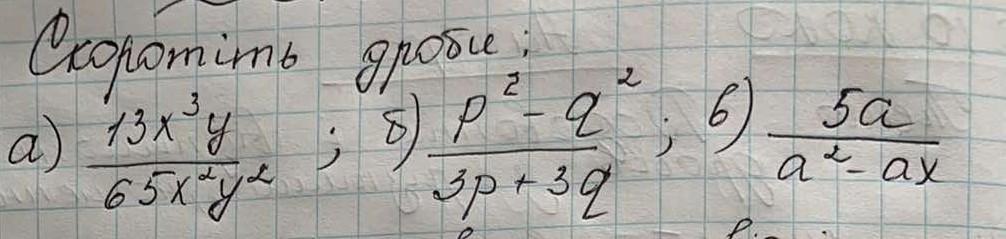 Скоротіть дроби:
а) 13x³y / 65x²y² ; б) p² - q² / 3p + 3q ; в) 5a / a² - ax